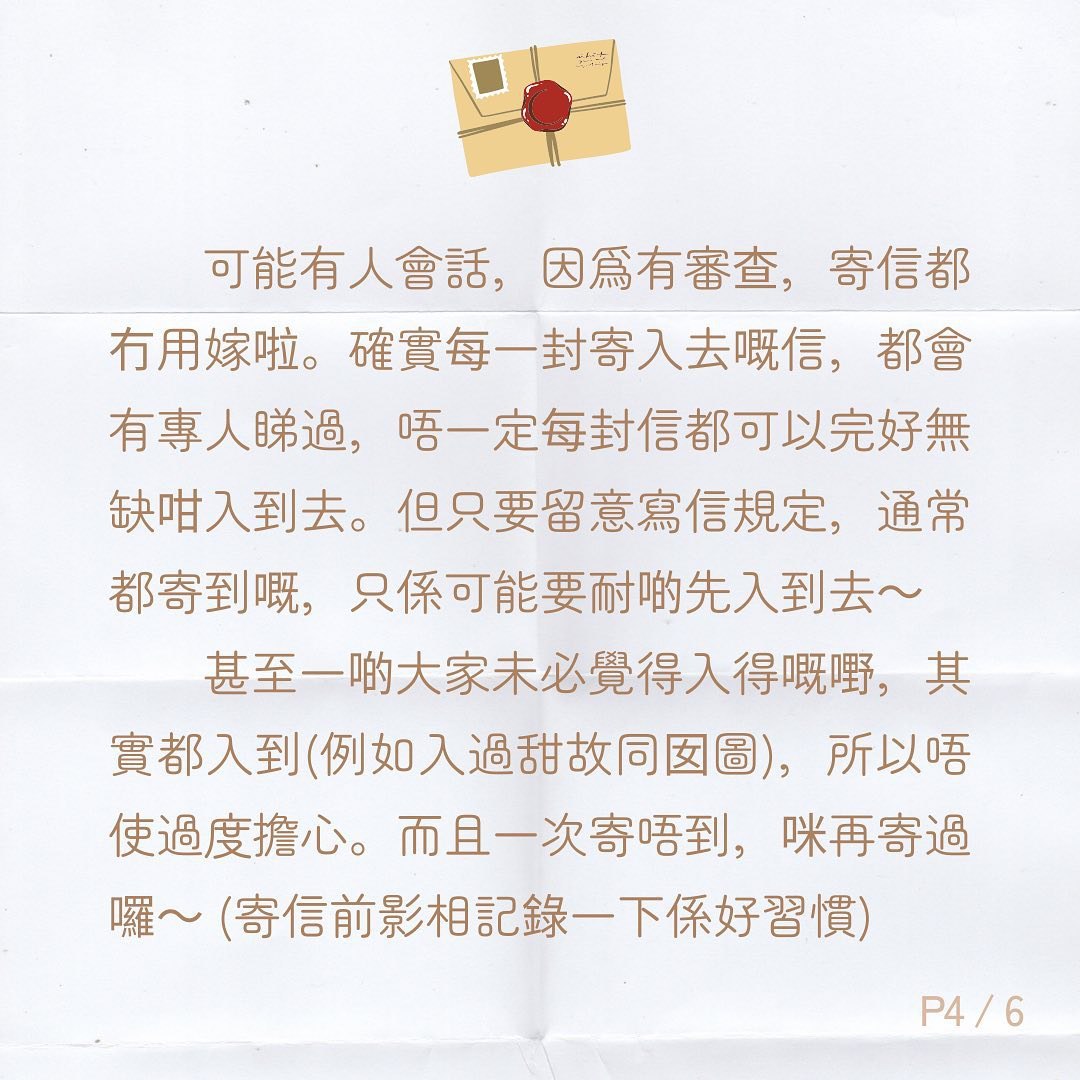 可能有人會話，因為有審查，寄信都
冇用嫁啦。確實每一封寄入去嘅信，都會
有專人睇過，唔一定每封信都可以完好無
缺咁入到去。但只要留意寫信規定，通常
都寄到嘅，只係可能要耐啲先入到去～
甚至一啲大家未必覺得入得嘅嘢，其
實都入到(例如入過甜故同囡圖)，所以唔
使過度擔心。而且一次寄唔到，咪再寄過
囉～ (寄信前影相記錄一下係好習慣)
P4 / 6